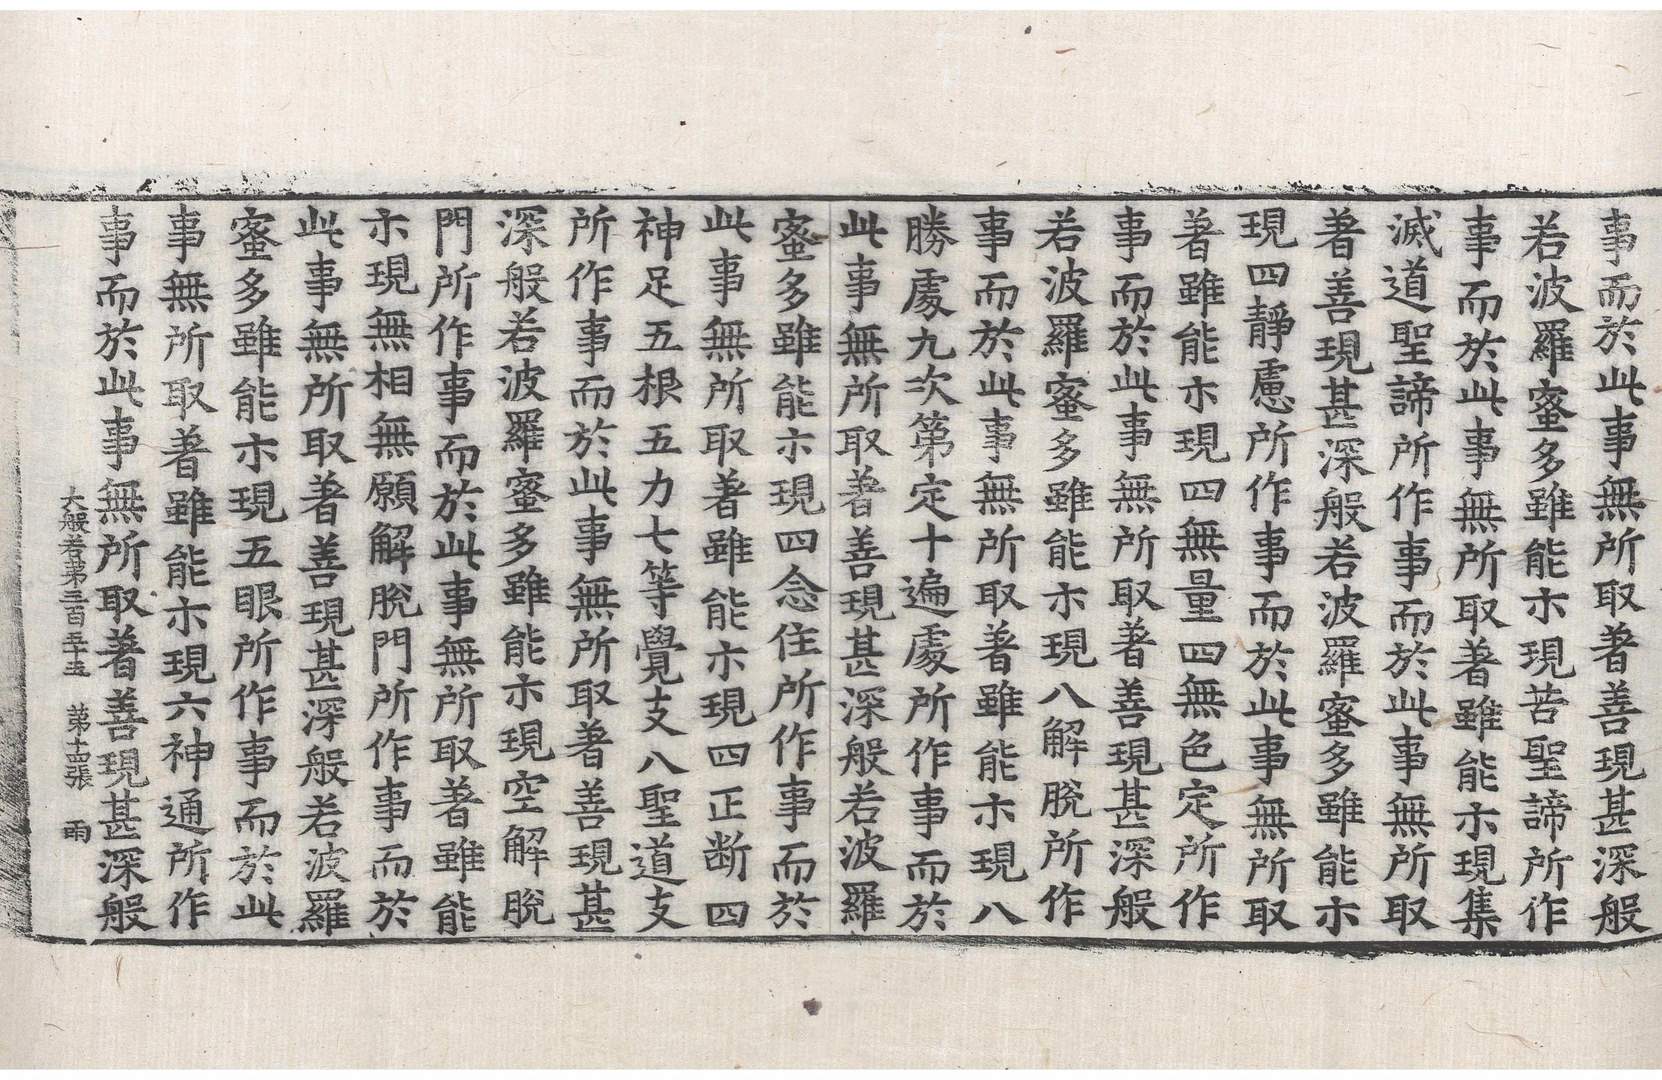 事而於此事無所取著善現甚深般
若波羅蜜多雖能示現苦聖諦所作
事而於此事無所取著雖能示現集
滅道聖諦所作事而於此事無所取
著善現甚深般若波羅蜜多雖能示
現四靜慮所作事而於此事無所取
著雖能示現四無量四無色定所作
事而於此事無所取著善現甚深般
若波羅蜜多雖能示現八解脫所作
事而於此事無所取著雖能示現八
勝處九次第定十遍處所作事而於
此事無所取著善現甚深般若波羅
蜜多雖能示現四念住所作事而於
此事無所取著雖能示現四正断四
神足五根五力七等覺支八聖道支
所作事而於此事無所取著善現甚
深般若波羅蜜多雖能示現空解脫
門所作事而於此事無所取著雖能
示現無相無願解脫門所作事而於
此事無所取著善現甚深般若波羅
蜜多雖能示現五眼所作事而於此
事無所取著雖能示現六神通所作
事而於此事無所取著善現甚深般
大般若第三百五十五 第十四張 雨